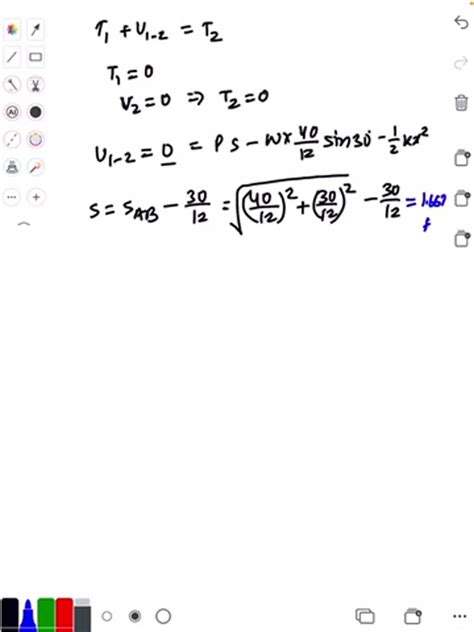 T₁ + U₁₋₂ = T₂
T₁ = 0
V₂ = 0 ⇒ T₂ = 0
U₁₋₂ = 0 = P s - W x 40/12 sin30 - 1/2 kx²
S = S_AB - 30/12 = √((40/12)² + (30/12)²) - 30/12 = 1.667
f